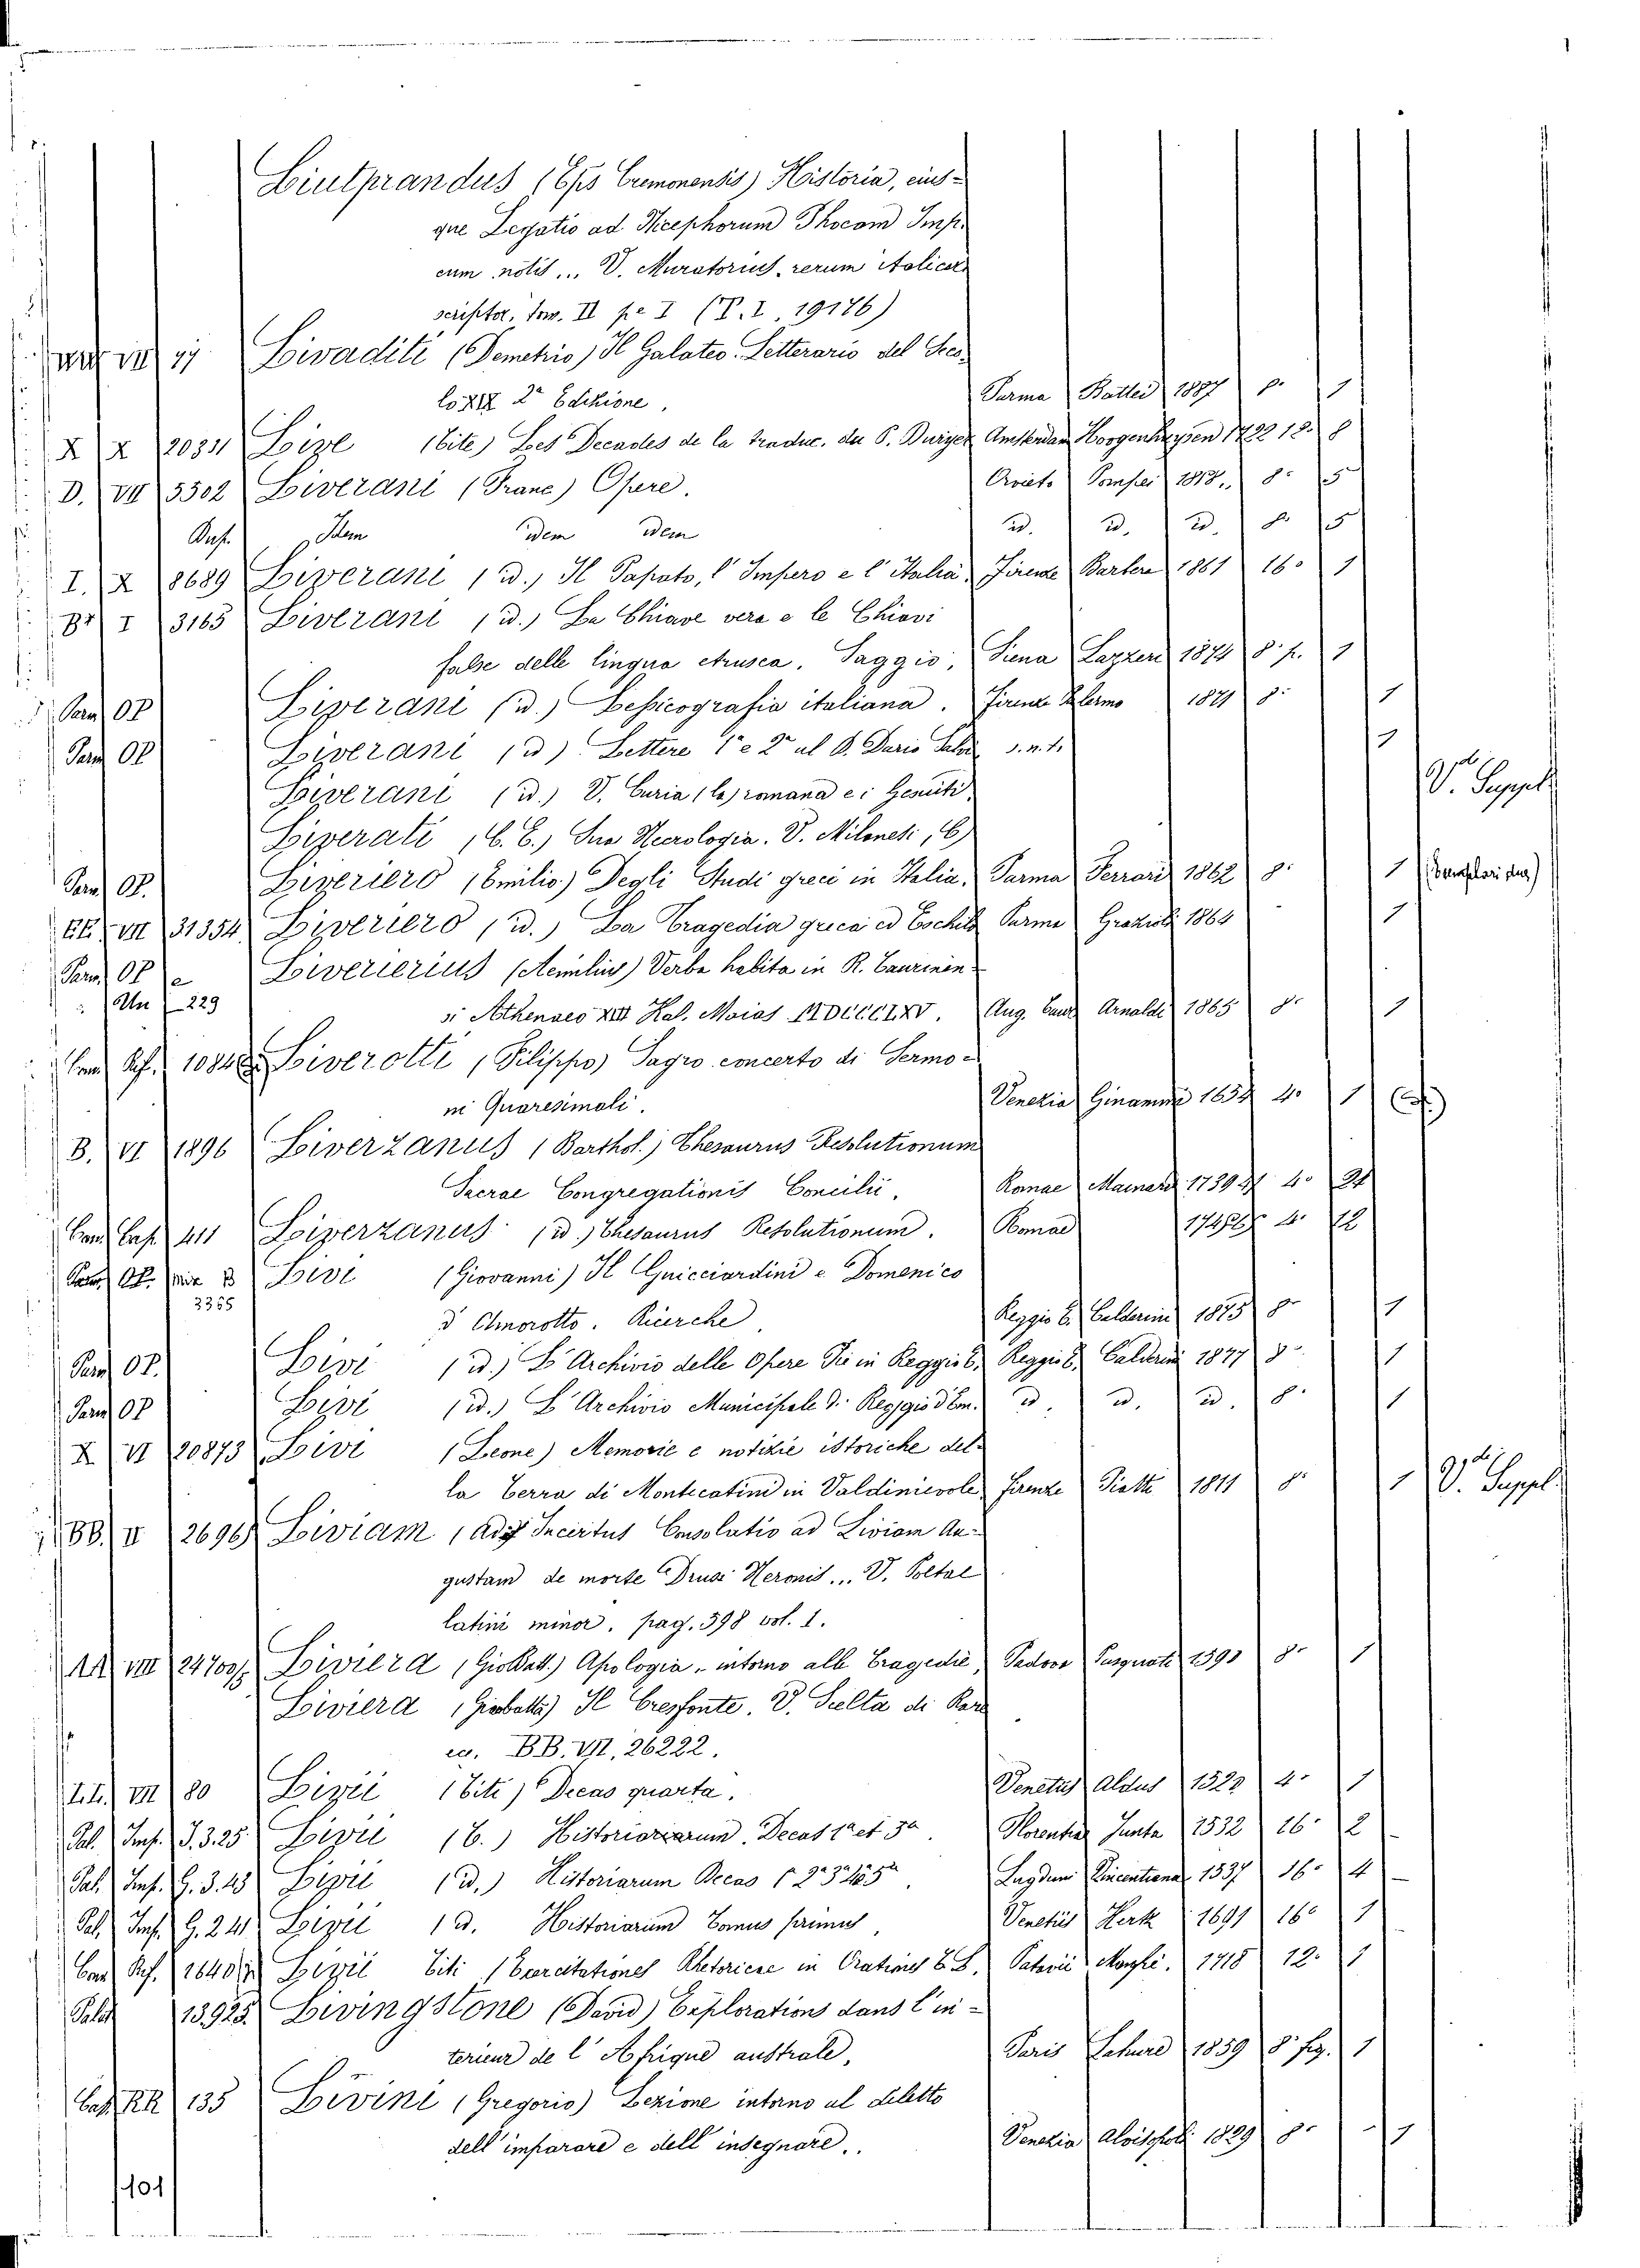 Liutprandus (Eps Cremonensis) Historia, eius-
que Legatio ad Nicephorum Phocam Imp.
cum notis... V. Muratorius, rerum Italicar.
scriptor. tom. II pe I (P. I. 19176)
VIII Livaditi (Demetrio) Il Galateo Letterario del Seco-
lo XIX 2ª Edizione. Parma Battei 1887 1
X X 12031 Live (Tite) Les Decades de la traduc. du P. Duryer Amsterdam 1722 12. 8
D. VII 5502 Liverani (Franc) Opere. Orvieto Pompei 1858.. 8. 5
Idem idem idem id. id. id. 8. 5
I. X 8689 Liverani (id.) Il Papato, l'Impero e l'Italia, Firenze Barbera 1861 16. 1
Br I 3165 Liverani (id.) La Chiave vera e le Chiavi
false delle lingua etrusca. Saggio, Siena Lazzeri 1874 8. f. 1
Parm OP Liverani (id.) Lessicografia italiana. Firenze 1871 8. 1
Parm OP Liverani (id.) Lettere 1ª e 2ª al D. Dario s.n.t. 1
Liverani (id.) V. Curia (la) romana e i Gesuiti. V. Suppel
Liverati (C. E.) Sua Necrologia. V. Milanesi, C)
Parm OP. Liveriero (Emilio) Degli Studi greci in Italia, Parma Ferrari 1862 8. 1 (Esemplari due)
EE VII 31354 Liveriero (id.) La Tragedia greca ed Eschilo Parma Grazioli 1864 1
Parm OP e Liverierius (Aemilius) Verba habita in R. Taurinen-
Un 229 si Athenaeo XIII Kal. Maias MDCCCLXV. Aug. Taur Arnaldi 1865 8. 1
Liverotti (Filippo) Sagro concerto di Sermo-
ni Quaresimali. Venezia Ginammi 4. 1
B. VI 1896 Liverzanus (Barthol.) Thesaurus Resolutionum
Sacrae Congregationis Concilii, Romae Mainardi 1739 4.
411 Liverzanus (id.) Thesaurus Resolutionum. Romae 4. 12
Livi (Giovanni) Il Guicciardini e Domenico
3355 d'Amorotto. Ricerche. Reggio E. Calderini 1875 8. 1
Parm OP. Livi (id.) L'Archivio delle Opere Pie in Reggio E. Reggio E. Calderini 1877 8. 1
Parm OP Livi (id.) L'Archivio Municipale di Reggio d'Em. id. id. id. 8. 1
X VI 20873 Livi (Leone) Memorie e notizie istoriche del-
la Terra di Montecatini in Valdinievole Firenze Piatti 1811 8. 1 V. Suppel.
BB. V 2696 Liviam (Ad) Incertus Consolatio ad Liviam Au-
gustam de morte Drusi Neronis... V. Poetae
latini minor. pag. 398 vol. 1.
AA VIII 24700 Liviera (Gio. Batt.) Apologia intorno alle Tragedie, Padova Pasquati 1590 8. 1
Liviera (Giobatta) Il Cresfonte. V. Scelta di Rare
ec. BB. VII. 26222.
VII 80 Livii (Titi) Decas quarta. Venetiis Aldus 1520 4. 1
Pal. Imp. J. 3.25 Livii (T.) Historiarum. Decas 1ª et 3ª. Florentiae Junta 1532 16. 2
Pal. Imp. G. 3.43 Livii (id.) Historiarum Decas 1ª 2ª 3ª 4ª 5ª. Lugduni Vincentium 1537 16. 4
Pal. Imp. G. 241 Livii (id. Historiarum Tomus primus, Venetiis Hertz 1691 16. 1
Livii Titi (Exercitationes Rhetoricae in Orationes T. L. Patavii Manfrè. 1718 12. 1
Palat 13925. Livingstone (David) Explorations dans l'in-
terieur de l'Afrique australe, Paris Lahure 1859 8. fig. 1
RR 135 Livini (Gregorio) Lezione intorno al diletto
dell'imparare e dell'insegnare. Venezia Alvisopoli 1829 8. 1
101